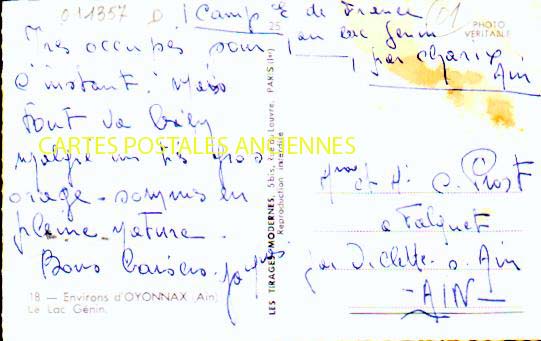 011357 D
Camp g de France
au lac Genin
par Charix
Ain
01
25
PHOTO
VÉRITABLE
Très occupés pour
l'instant. Mais
tout va bien
malgré un très gros
orage - sommes en
pleine nature.
Bons baisers.
CARTES POSTALES ANCIENNES
LES TIRAGES MODERNES, 5bis, Rue du Louvre, PARIS (1er)
Reproduction interdite
et M. C. Prost
a Falquet
par Viclette s. Ain
- AIN -
18 — Environs d'OYONNAX (Ain)
Le Lac Génin.